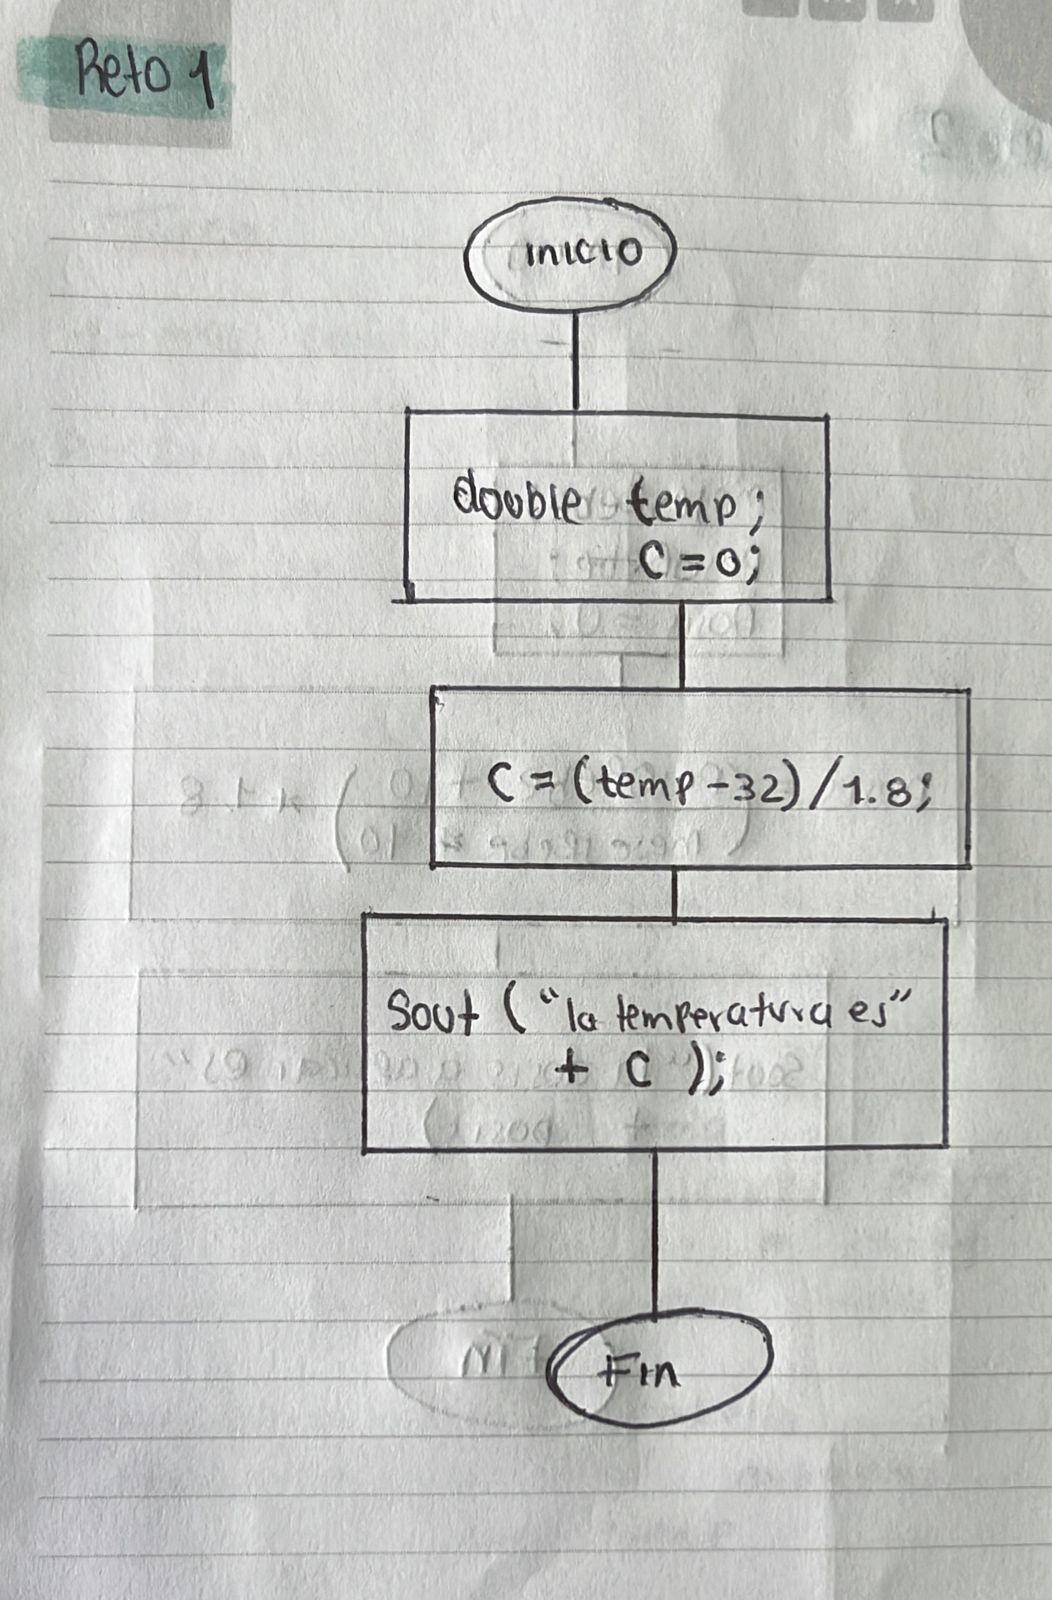 Reto 1
inicio
double temp;
C = 0;
C = (temp - 32) / 1.8;
Sout ( "la temperatura es"
+ C );
Fin